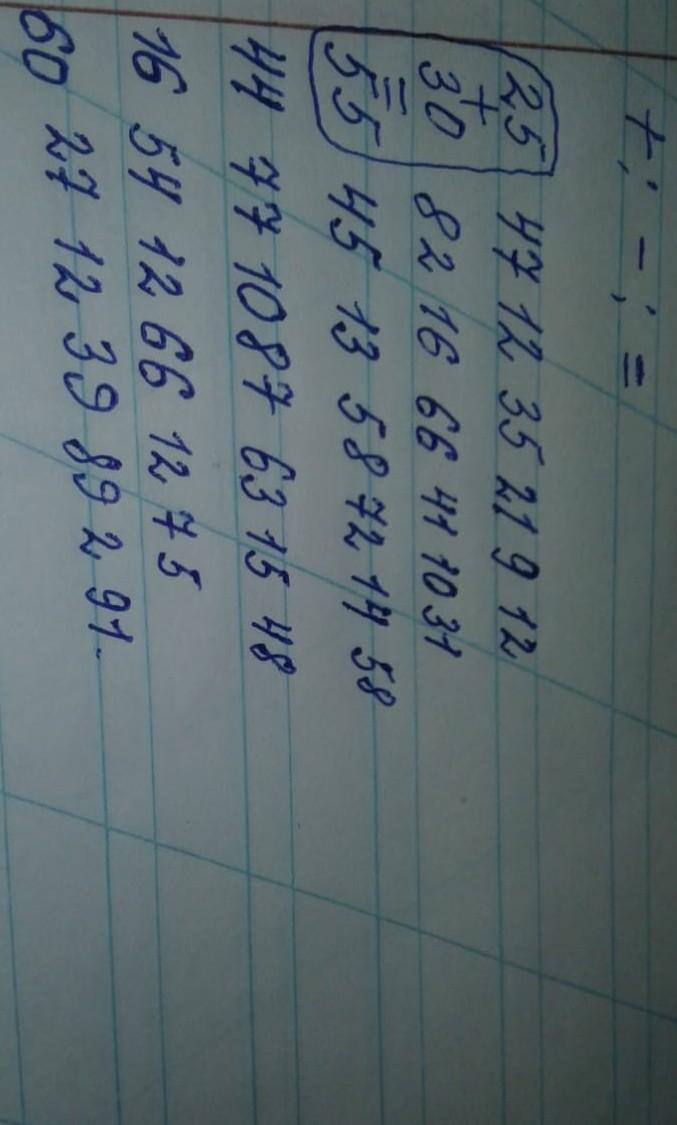 +; -; =
25 47 12 35 21 9 12
+
30 82 16 66 41 10 31
=
55 45 13 58 72 14 58
44 77 10 87 63 15 48
16 54 12 66 12 7 5
60 27 12 39 89 2 91.